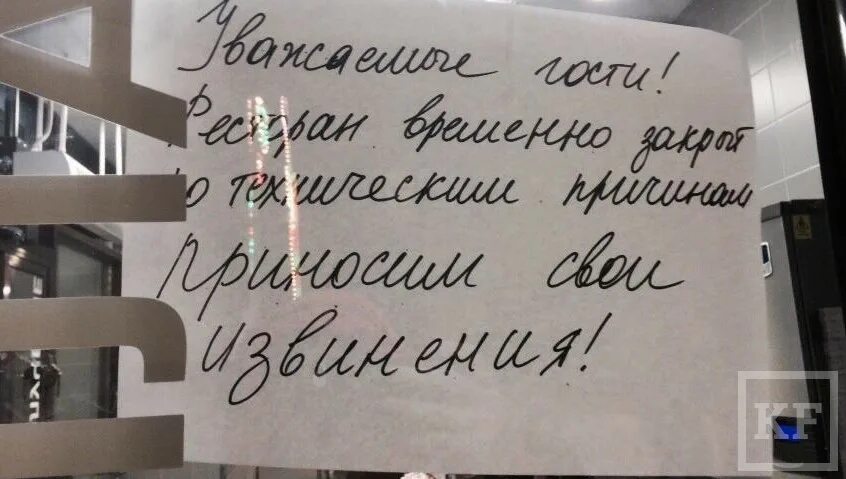 Уважаемые гости!
Ресторан временно закрыт
по техническим причинам
приносим свои
извинения!
KF